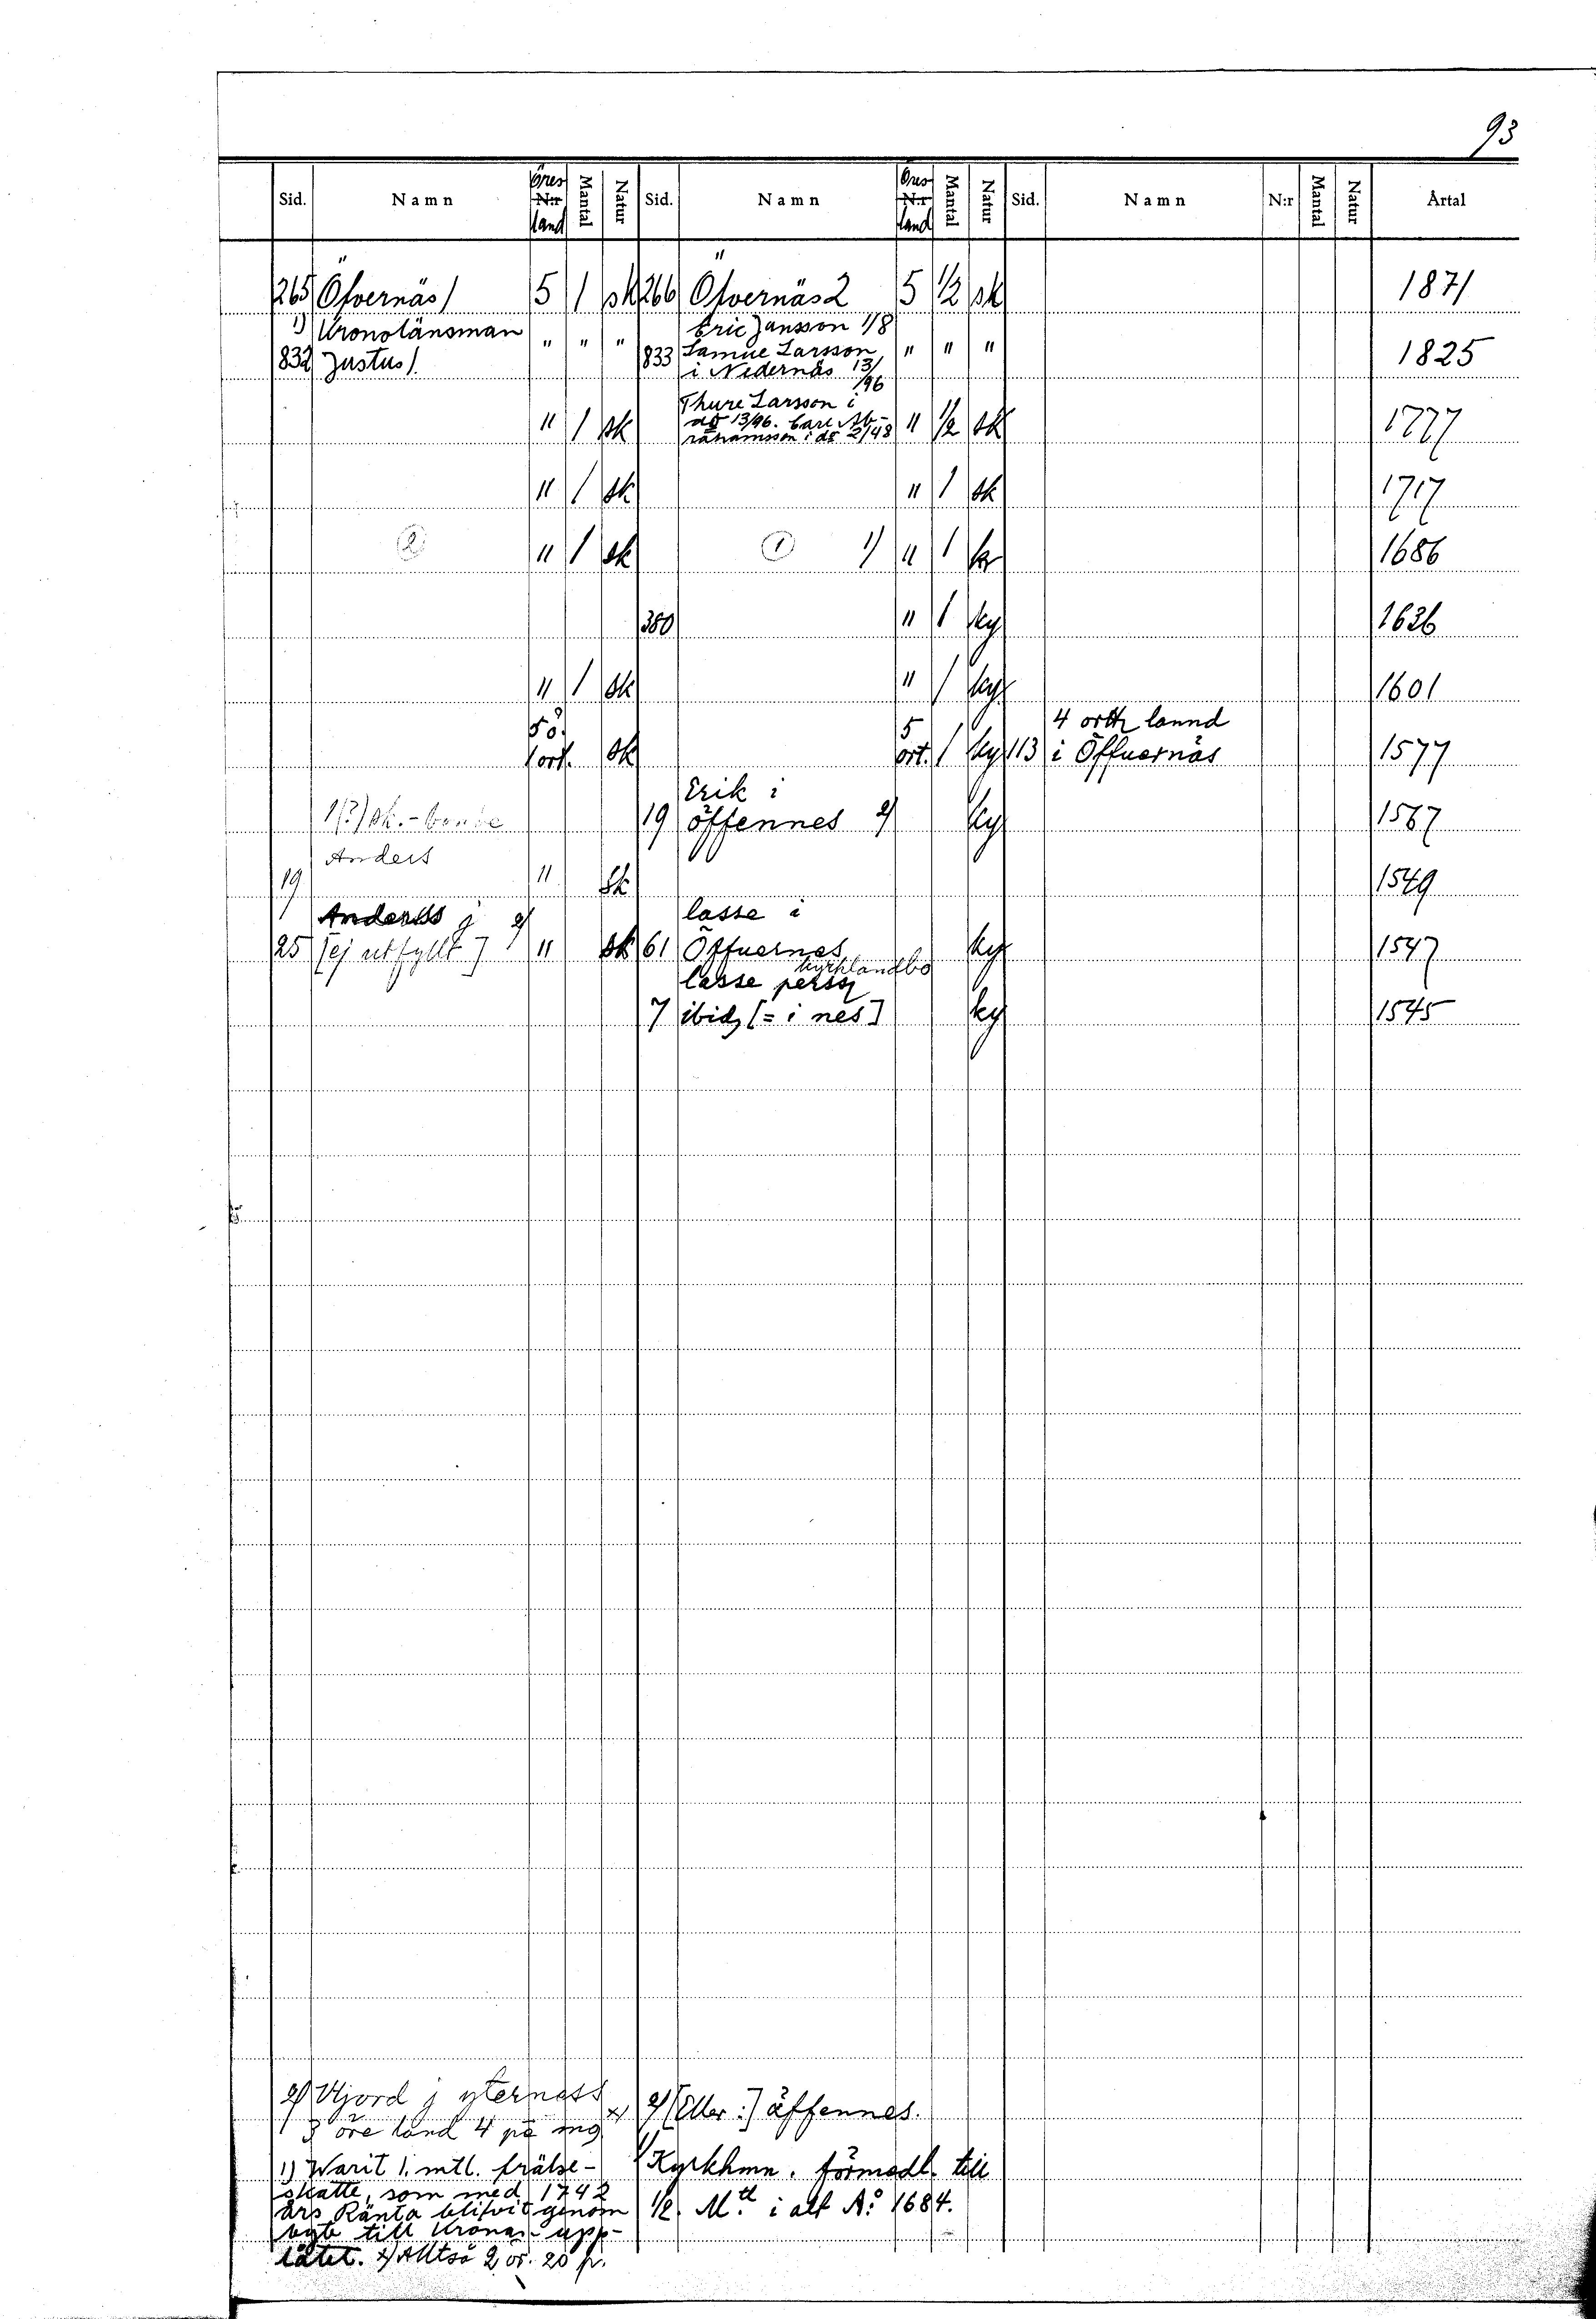 93
Sid. Namn Öres N:r land Mantal Natur Sid. Namn Öres N:r land Mantal Natur Sid. Namn N:r Mantal Natur Årtal
265 Öfvernäs 1 5 1 sk 266 Öfvernäs 2 5 1/2 sk 1871
1) Kronolänsman Eric Jansson 1/8
832 Justus 1. " " " 833 Samue Larsson " " " 1825
i Nedernäs 13/96
Thure Larsson i
" 1 sk do 13/96. Carl Ab- " 1/2 sk 1777
rahamsson i do 2/48
" 1 sk " 1 sk 1717
2 " 1 sk 1 1) " 1 kr 1686
380 " 1 ky 1636
" 1 sk " 1 ky 1601
5 ö. 5 4 orth lannd
1 ort. sk ort. 1 ky 113 i Öffuernäs 1577
Erik i
1(?) sk.-bonde 19 öffennes 2) ky 1567
Anders
19 " sk 1549
Anderss j 2) lasse i
25 [ej utfyllt] " sk 61 Öffuernes ky 1547
kyrklandbo
lasse perss
7 ibid [= i nes] ky 1545
2) Utjord j yterness
3 öre land 4 pä mg x)
1) Warit 1. mtl. frälse-
skatte, som med 1742
års Ränta blifvit genom
byte till Kronan upp-
låtet. x) Alltså 2 ör. 20 p.
2) [Eller:] äffennes.
1) Kyrkhmn. förmedl. till
1/2. Mtl i alt A:o 1684.